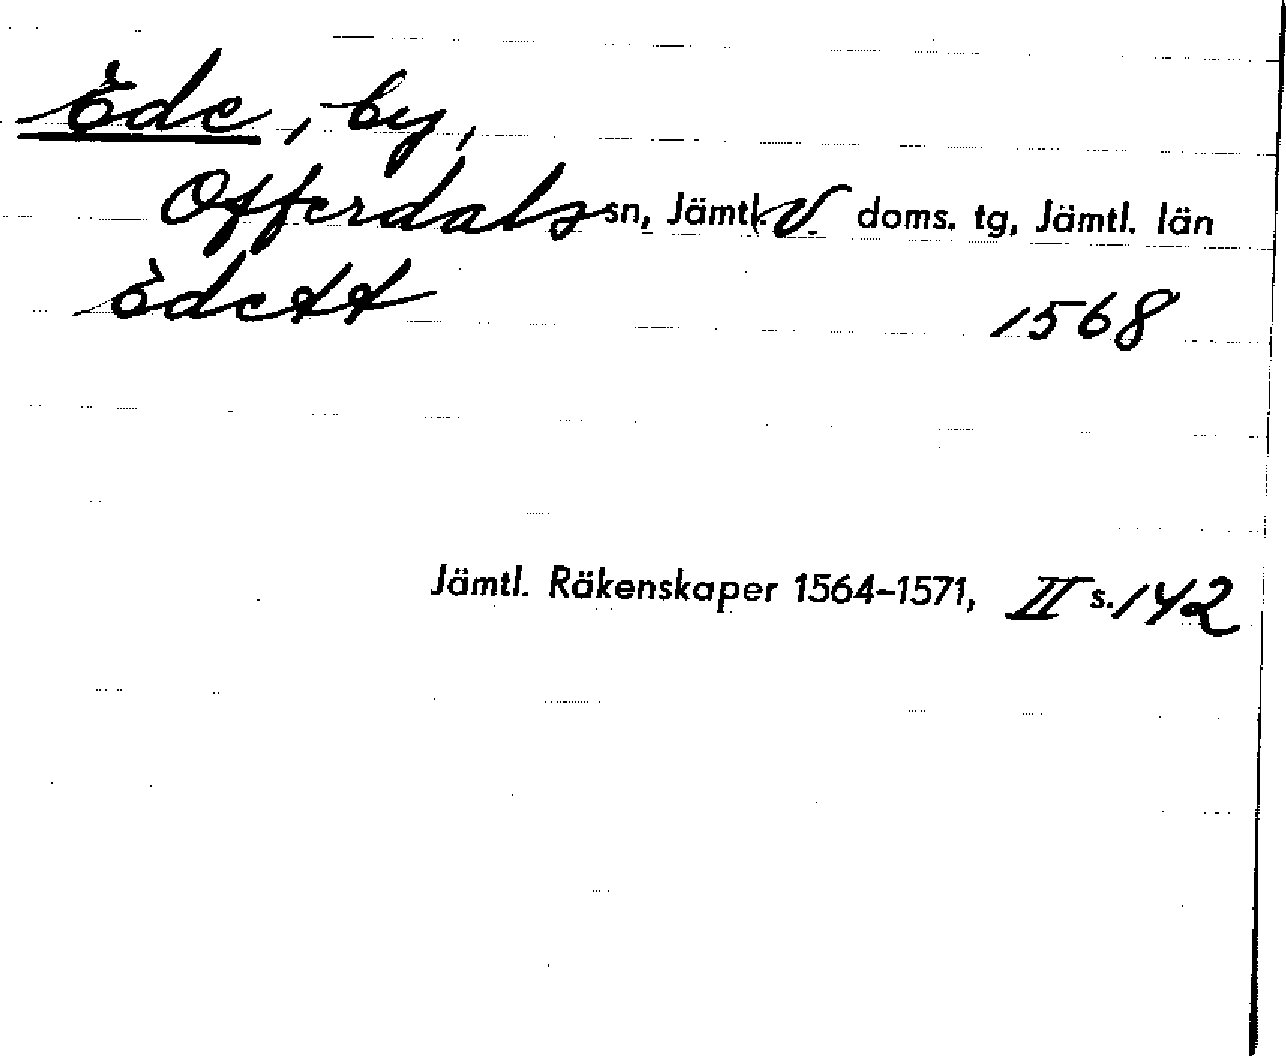 Ede, by,
Offerdals sn, Jämtl. V. doms. tg, Jämtl. län
Edett 1568
Jämtl. Räkenskaper 1564-1571, II s. 142